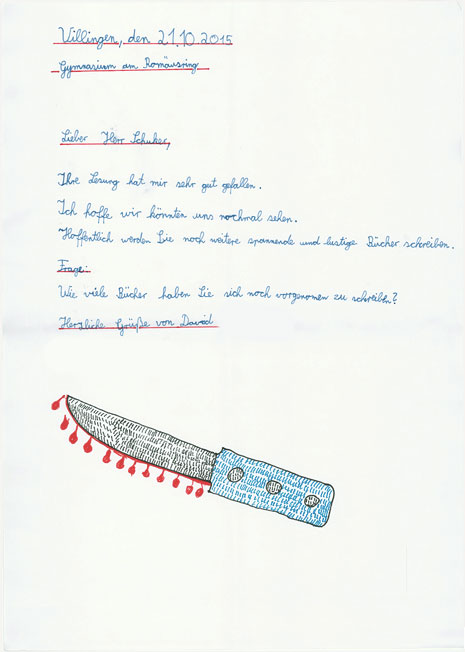 Villingen, den 21.10.2015
Gymnasium am Romäusring
Lieber Herr Schuker,
Ihre Lesung hat mir sehr gut gefallen.
Ich hoffe wir könnten uns nochmal sehen.
Hoffentlich werden Sie noch weitere spannende und lustige Bücher schreiben.
Frage:
Wie viele Bücher haben Sie sich noch vorgenomen zu schreiben?
Herzliche Grüße von David